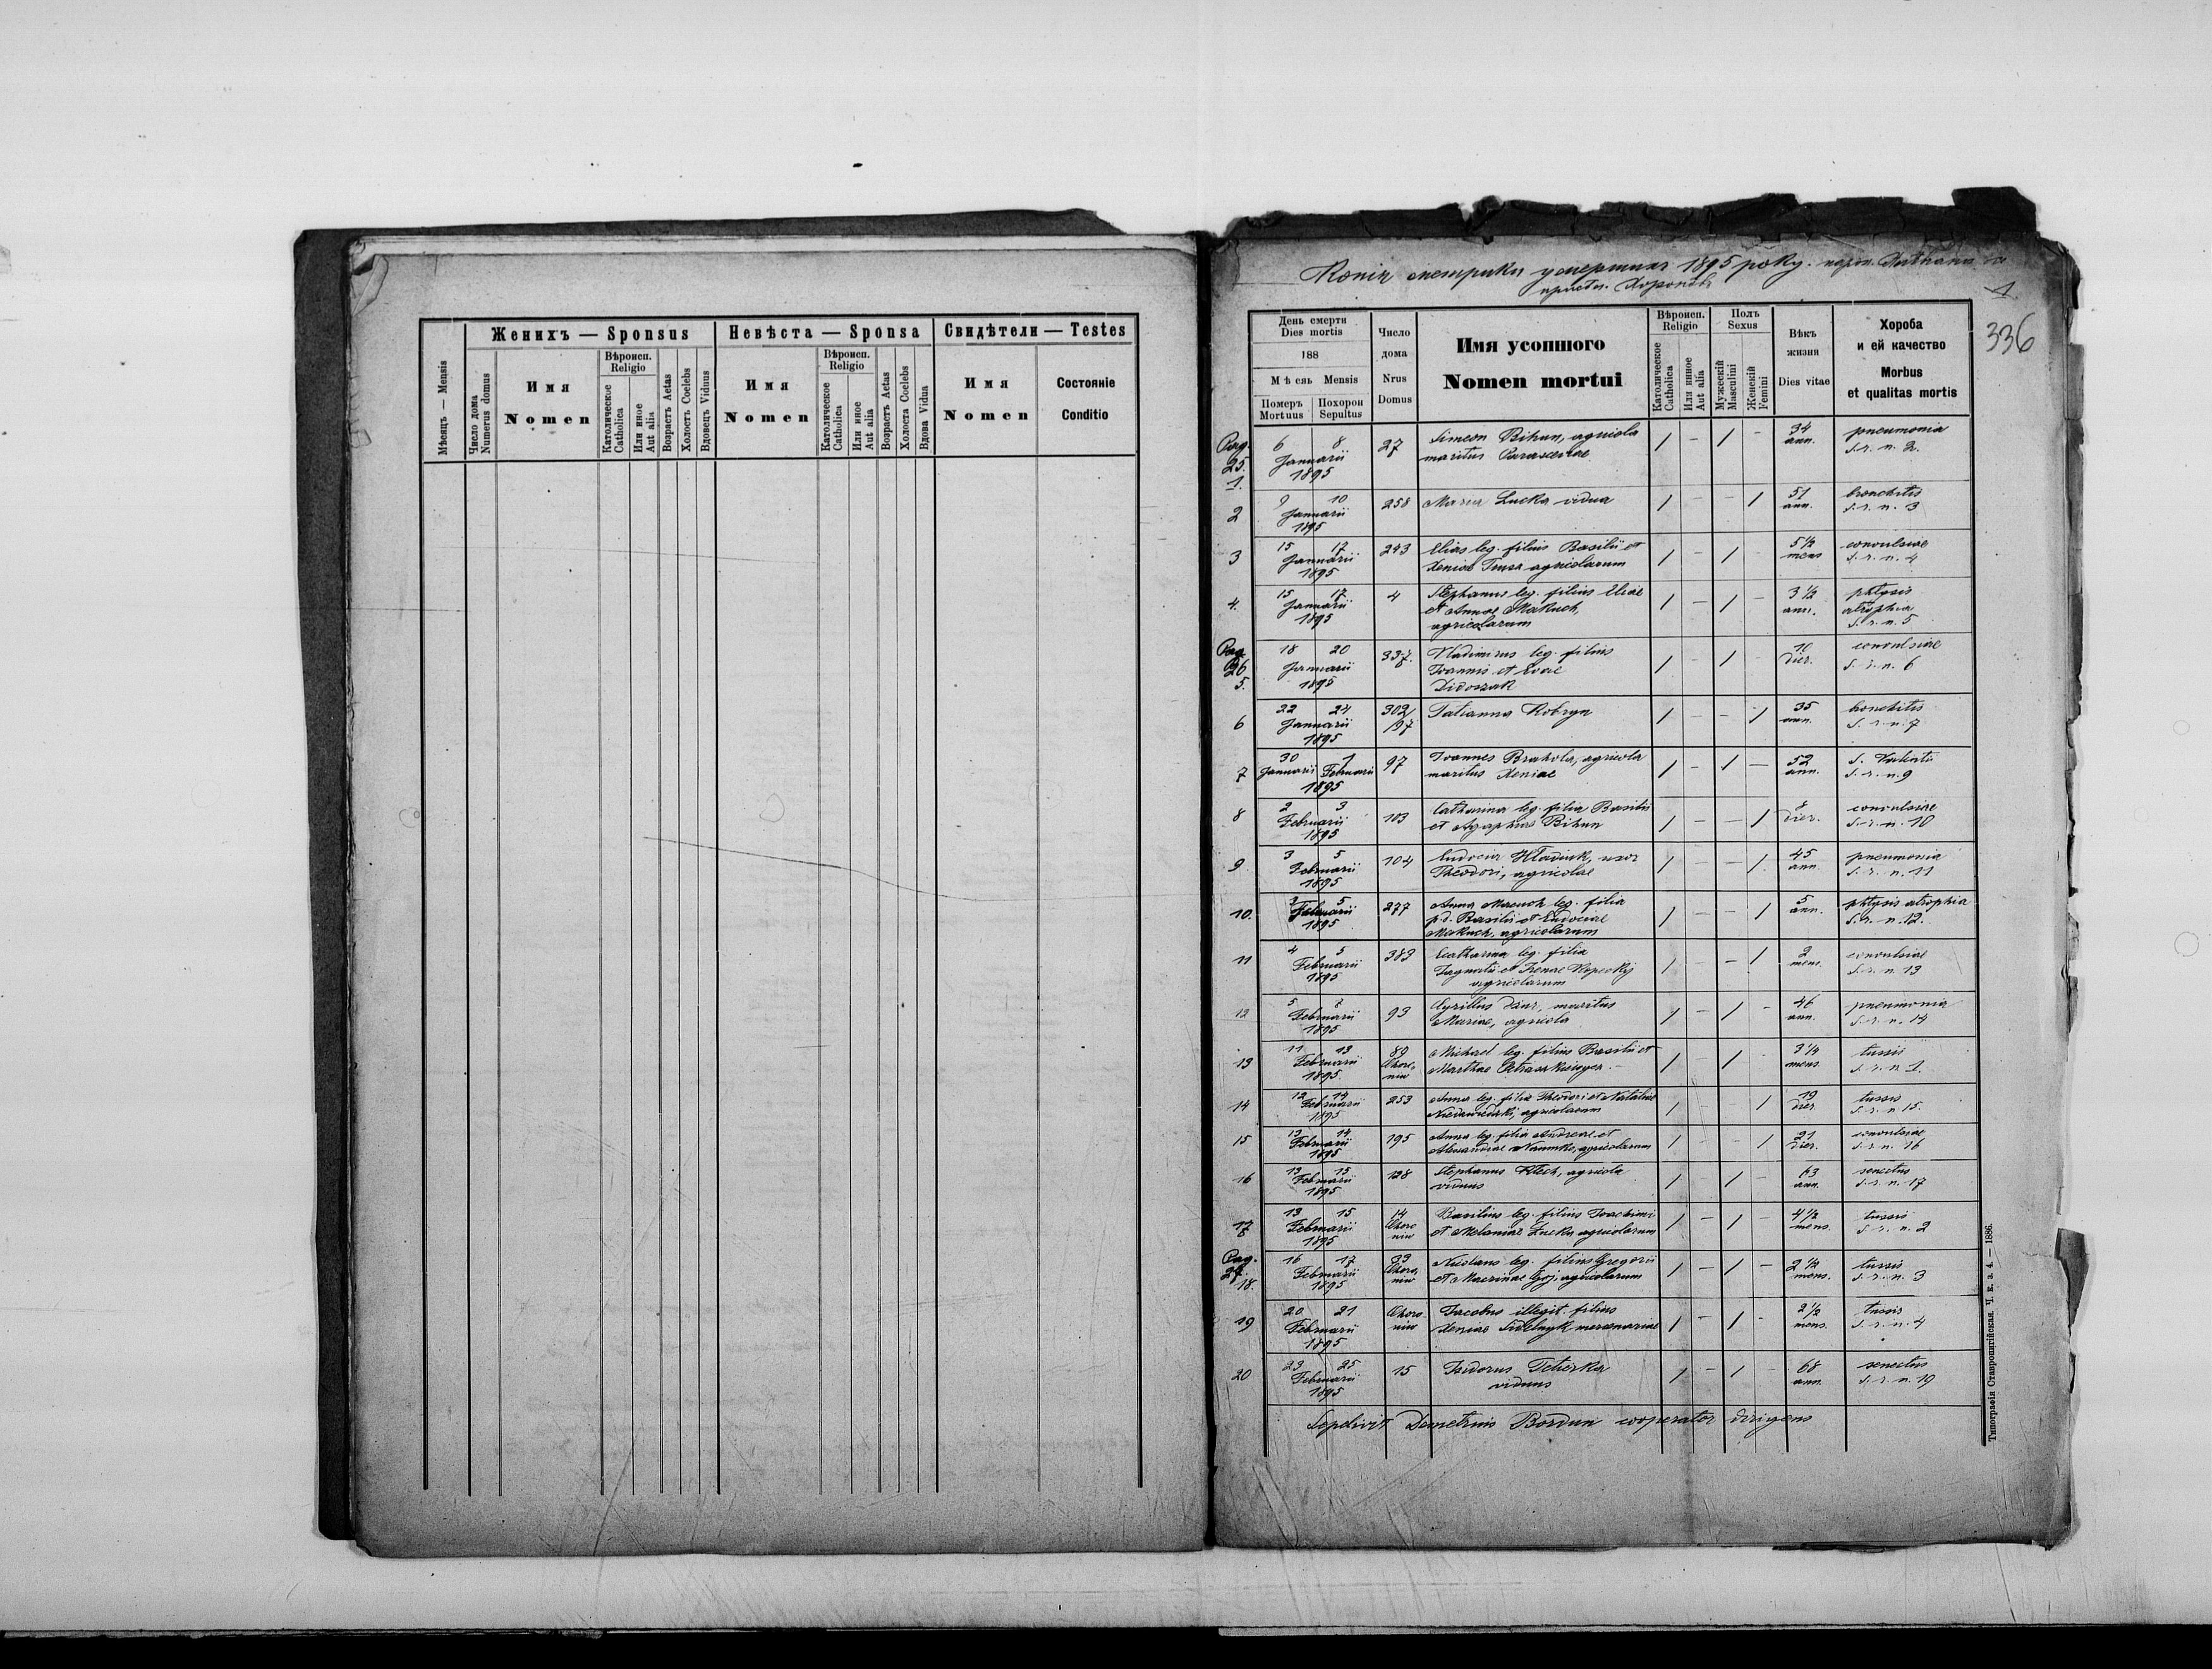 Женихъ — Sponsus
Невѣста — Sponsa
Свидѣтели — Testes
Мѣсяцъ — Mensis
Число дома
Numerus domus
Имя
Nomen
Вѣроисп.
Religio
Католическое
Catholica
Или иное
Aut alia
Возрастъ Aetas
Холостъ Coelebs
Вдовецъ Viduus
Имя
Nomen
Вѣроисп.
Religio
Католическое
Catholica
Или иное
Aut alia
Возрастъ Aetas
Холоста Coelebs
Вдова Vidua
Имя
Nomen
Состояніе
Conditio
Копія метрики умершихъ 1895 року
1
336
День смерти
Dies mortis
188
Мѣсяь Mensis
Померъ
Mortuus
Похорон
Sepultus
Число
дома
Nrus
Domus
Имя усопшого
Nomen mortui
Вѣроисп.
Religio
Католическое
Catholica
Или иное
Aut alia
Полъ
Sexus
Мужескій
Masculini
Женскій
Femini
Вѣкъ
жизни
Dies vitae
Хороба
и ей качество
Morbus
et qualitas mortis
Pag. 25. 1. 6 8 Januarii 1895 27 Simeon Bihun, agricola
maritus Parasceviae / - / - 34 ann. pneumonia S. r. n. 2.
2 9 10 Januarii 1895 258 Maria Lucka vidua / - - / 51 ann. bronchitis S. r. n. 3
3 15 17 Januarii 1895 243 Elias leg. filius Basilii et
Xeniae agricolarum / - / 5 1/2 mens convulsiae S. r. n. 4
4. 15 17 Januarii 1895 4 Stephanus leg. filius Eliae
et Annae Makuch,
agricolarum / - / - 3 1/2 ann. phtysis atrophia S. r. n. 5
Pag. 26 5. 18 20 Januarii 1895 337. Vladimirus leg. filius
Joannis et Evae
Didoszak / - / - 10 dier. convulsiae S. r. n. 6
6 22 24 Januarii 1895 302/197 Tatianna Kobryn / - - / 35 ann. bronchitis S. r. n. 7
7 30 Januarii 1 Februarii 1895 97 Joannes Brahola, agricola
maritus Xeniae / - / - 52 ann. S. Valenti S. r. n. 9
8 2 3 Februarii 1895 103 Catharina leg. filia Basilii
et Agaphiae Bihun / - - / 8 dier. convulsiae S. r. n. 10
9. 3 5 Februarii 1895 104 Eudocia Hladiuk, uxor
Theodori, agricolae / - - / 45 ann pneumonia S. r. n. 11
10. 3 5 Februarii 1895 277 Anna leg. filia
pd. Basilii et Eudociae
Makuch, agricolarum / - - / 5 ann. phtysis atrophia S. r. n. 12.
11 4 5 Februarii 1895 383 Catharina leg. filia
Ignatii et Irenae
agricolarum / - - / 2 mens. convulsiae S. r. n. 13
12 5 7 Februarii 1895 93 Cyrillus maritus
Mariae, agricola / - / - 46 ann. pneumonia S. r. n. 14
13 11 13 Februarii 1895 89 Choroniw Michael leg. filius Basilii et
Marthae / - / - 3 1/4 mens. tussis S. r. n 1.
14 12 14 Februarii 1895 253 Anna leg. filia Theodori et Nataliae
agricolarum / - / 19 dier. tussis S. r. n 15.
15 13 14 Februarii 1895 195 Anna leg. filia Andreae et
Alexandrae Naumko, agricolarum / - - / 21 dier. convulsiae S. r. n. 16
16 13 15 Februarii 1895 128 Stephanus agricola
viduus / - / - 63 ann. senectus S. r. n. 17
17 13 15 Februarii 1895 14 Choroniw Basilius leg. filius Joachimi
et Melaniae Lucka agricolarum / - / - 4 1/2 mens. tussis S. r. n. 2
Pag. 27. 18. 16 17 Februarii 1895 33 Choroniw Nicolaus leg. filius Gregorii
et Macrinae Goj, agricolarum / - / - 2 1/2 mens. tussis S. r. n. 3
19 20 21 Februarii 1895 Choroniw Jacobus illegit. filius
Xeniae Sidelnyk mercenariae / - / - 2 1/2 mens. tussis S. r. n. 4
20 23 25 Februarii 1895 15 Isidorus Teterka
viduus / - / - 68 ann. senectus S. r. n. 19
Sepelivit Demetrius Bordun cooperator dirigens
Типографія Ставропигійская. Ч. к. з. 4. — 1886.